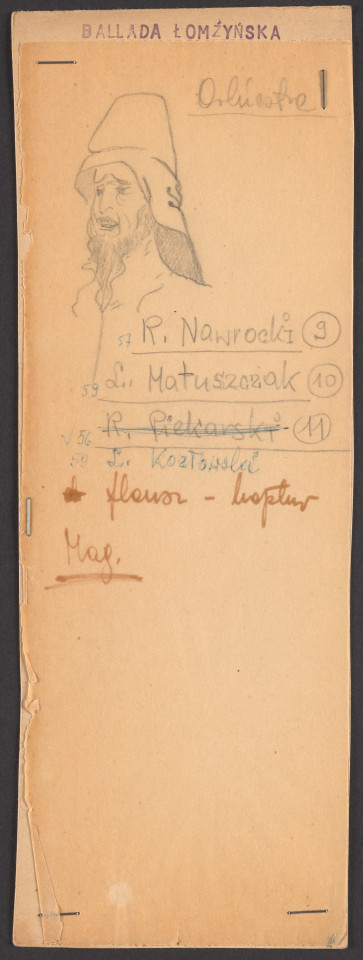 BALLADA ŁOMŻYŃSKA
Orkiestra
57 R. Nawrocki 9
59 L. Matuszczak 10
√ 56 R. Piekarski 11
59 L. Kozłowski
flausz - kaptur
Mag.